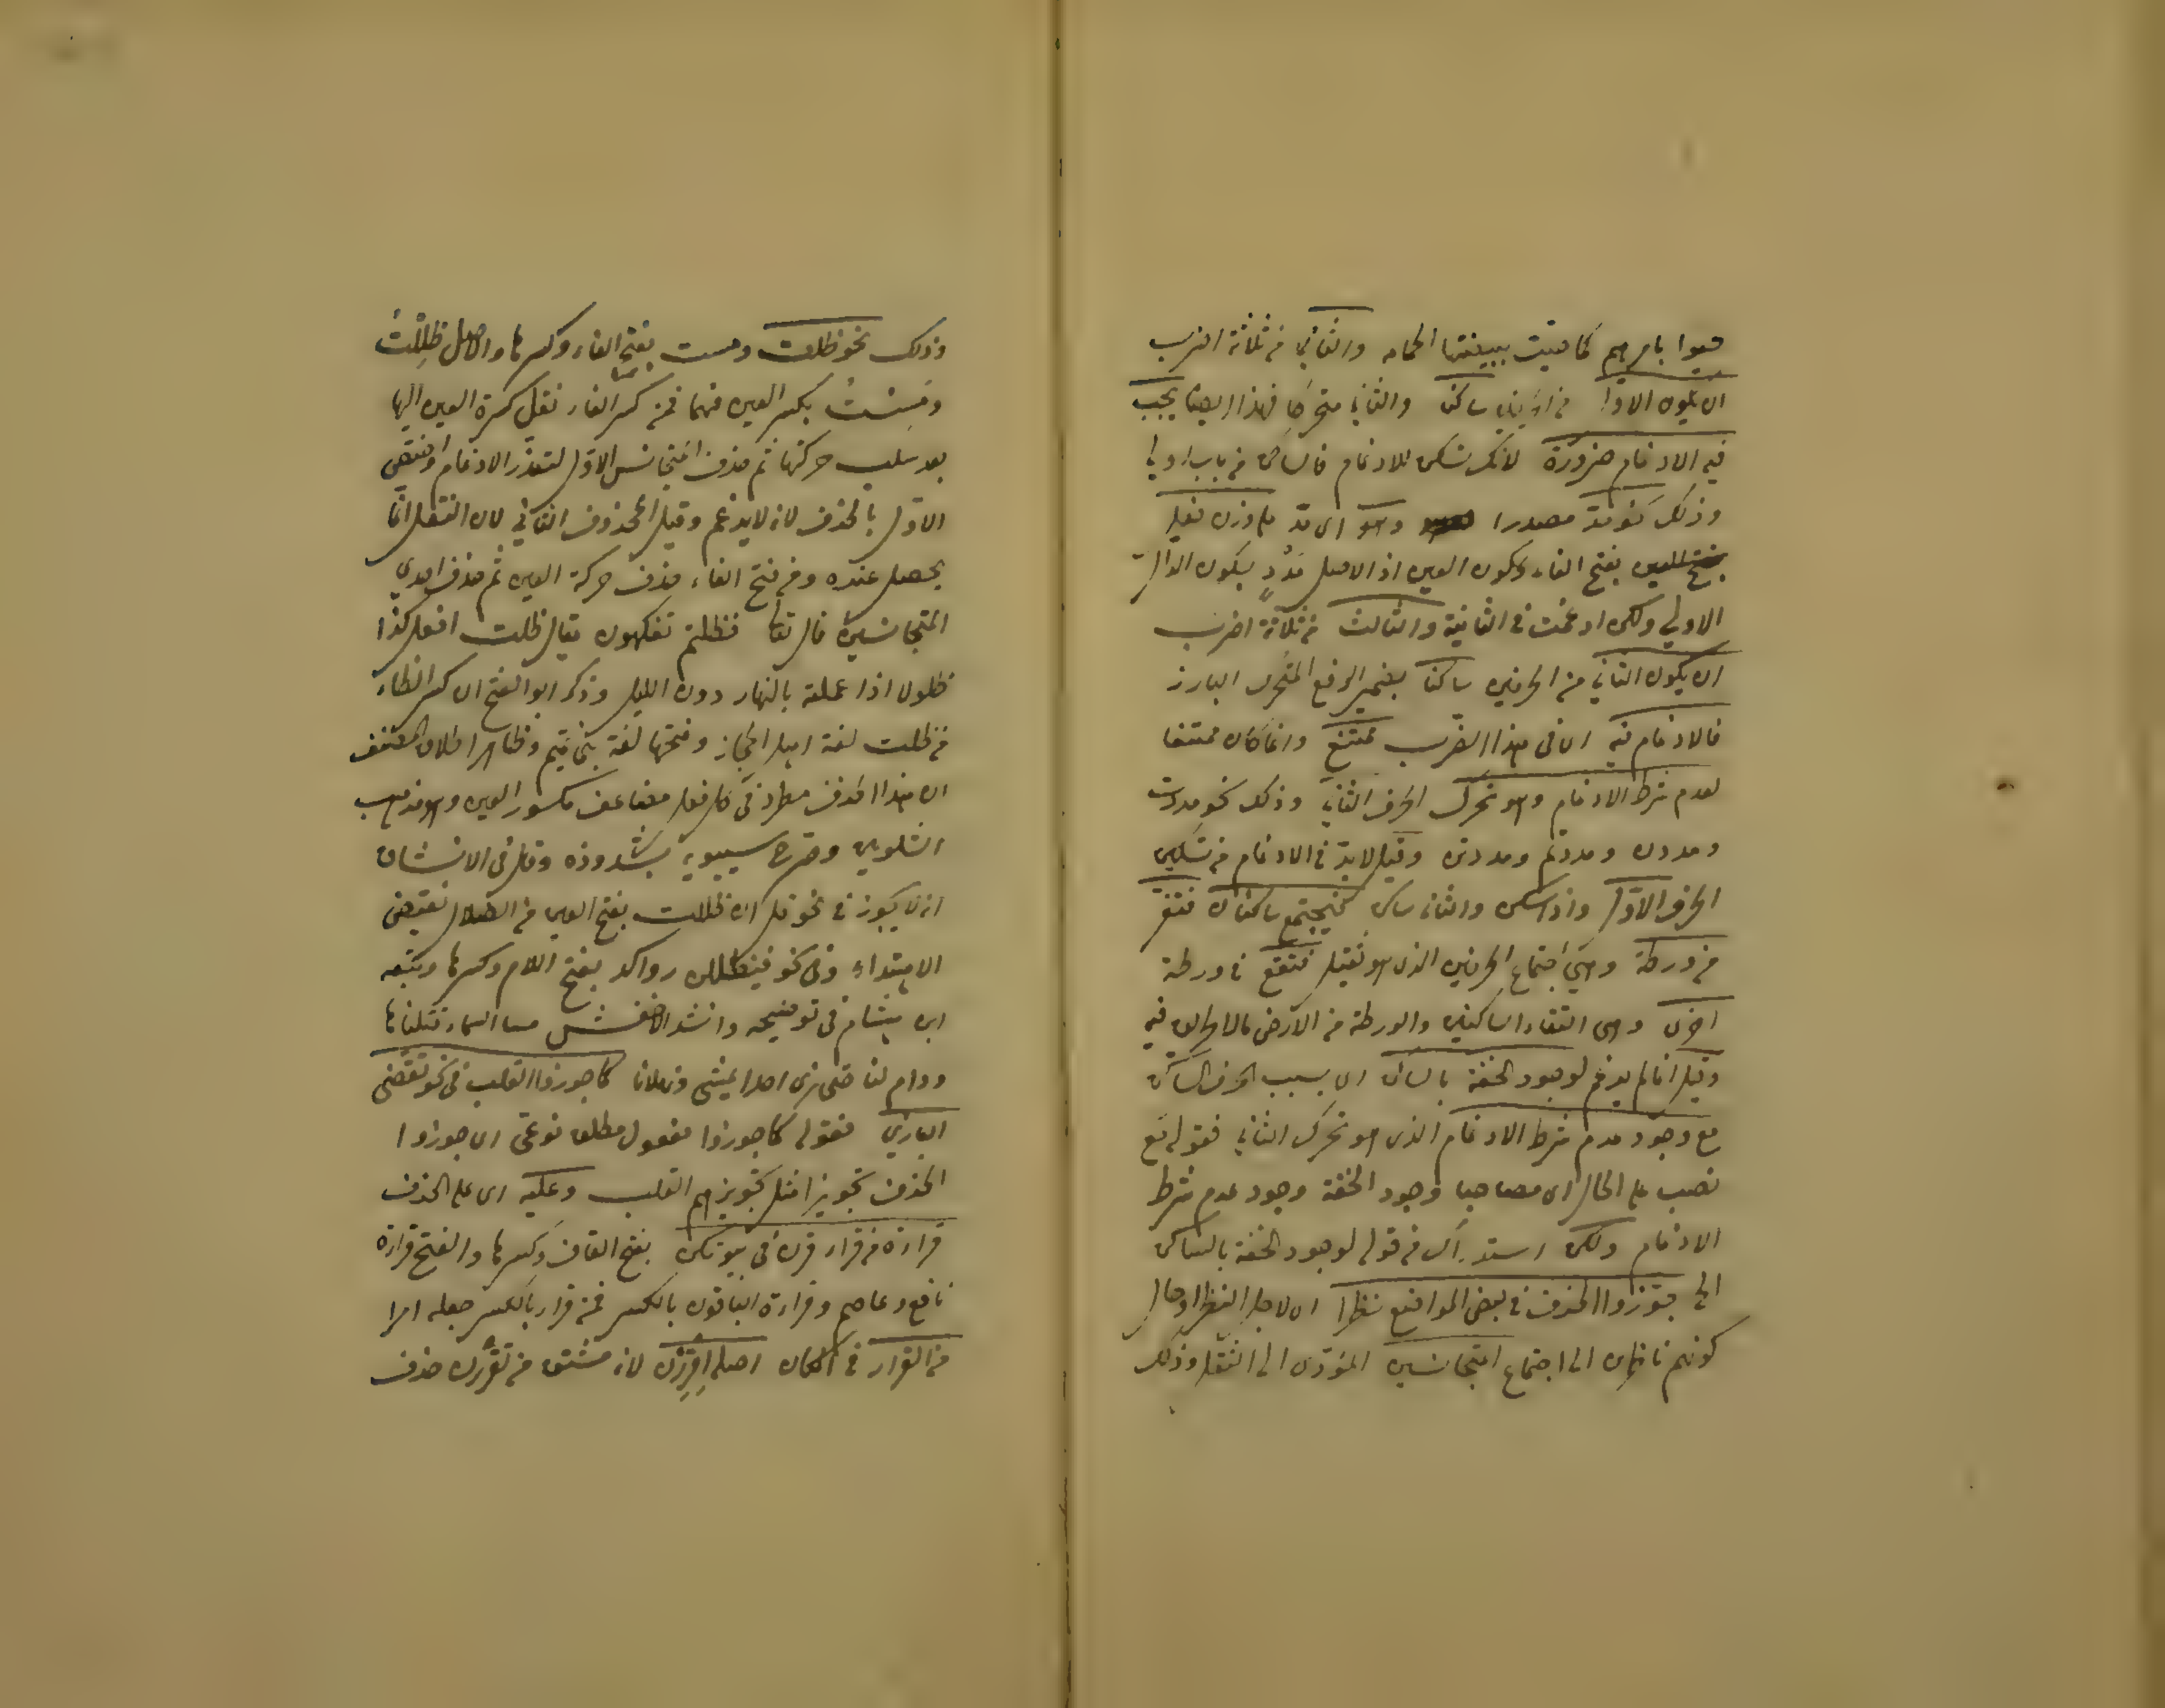 عيوا بامرهم كما عيت ببيضتها الحمامه والثاني من ثلاثة اضرب
ان يكون الاول من الحرفين ساكنا والثاني متحركا فهذا ايضا يجب
فيه الادغام ضرورة لانك تسكن للادغام فالساكن من باب اولى
وذلك نحو مدّ مصدرا وهو اي مدّ على وزن فعل
بفتح الفاء وسكون العين اذ الاصل مَدْدٌ بسكون الدال
الاولى ولكن ادغمت في الثانية والثالث من ثلاثة اضرب
ان يكون الثاني من الحرفين ساكنا بضمير الرفع المتحرك البارز
فالادغام فيه اي في هذا الضرب ممتنع وانما كان ممتنعا
لعدم شرط الادغام وهو تحرك الحرف الثاني وذلك نحو مددت
ومددن ومددتم ومددتن وقيل لابد في الادغام من تسكين
الحرف الاول واذا سكن والثاني ساكن فيجتمع ساكنان فتفر
من ورطة وهي اجتماع الحرفين الذي هو ثقيل فتقع في ورطة
اخرى وهي التقاء الساكنين والورطة من الارض مالا طريق فيه
وقيل انما لم يدغم لوجود الخفة بالساكن اي بسبب الحرف الساكن
مع وجود عدم شرط الادغام الذي هو تحرك الثاني فقوله مع
نصب على الحال اي مصاحبا وجود الخفة وجود عدم شرط
الادغام ولكن استدراك من قوله لوجود الخفة بالساكن
الخ جوزوا الحذف في بعض المواضع نظرا اي لاجل النظر او حال
كونهم ناظرين الى اجتماع المتجانسين المؤدي الى الثقل وذلك
وذلك نحو ظلت ومست بفتح الفاء وكسرها والاصل ظَلِلْتُ
ومَسِسْتُ بكسر العين فيهما فمن كسر الفاء نقل كسرة العين اليها
بعد سلب حركتها ثم حذف المتجانس الاول لتعذر الادغام واختص
الاول بالحذف لانه لا يدغم وقيل المحذوف الثاني لان الثقل انما
يحصل عنده ومن فتح الفاء حذف حركة العين ثم حذف احدى
المتجانسين قال تعا فظلتم تفكهون يقال ظلت افعل كذا
ظلولا اذا عملته بالنهار دون الليل وذكر ابو الفتح ان كسر الظاء
من ظلت لغة اهل الحجاز وفتحها لغة بني تميم وظاهر اطلاق المصنف
ان هذا الحذف مطرد في كل فعل مضاعف مكسور العين وهو مذهب
الشلوبين وصرح سيبويه بشذوذه وقال في الارتشاف
انه لا يجوز في نحو قل ان ظللت بفتح العين من الضلال نقيض
الاهتداء وفي نحو فيظللن رواكد بفتح اللام وكسرها وتبعه
ابن هشام في توضيحه وانشد الاخفش مسنا السماء فنلناها
ودام لنا حتى نرى احدا يمشي وثهلانا كما جوزوا القلب في نحو تقضى
البازي فقوله كما جوزوا مفعول مطلق نوعي اي جوزوا
الحذف تجويزا مثل تجويزهم القلب وعليه اي على الحذف
قراءة من قراء وقرن في بيوتكن بفتح القاف وكسرها والفتح قراءة
نافع وعاصم وقراءة الباقون بالكسر فمن قراء بالكسر جعله امرا
من القرار في المكان اصله اِقْرِرْن لانه مشتق من تقررن حذف